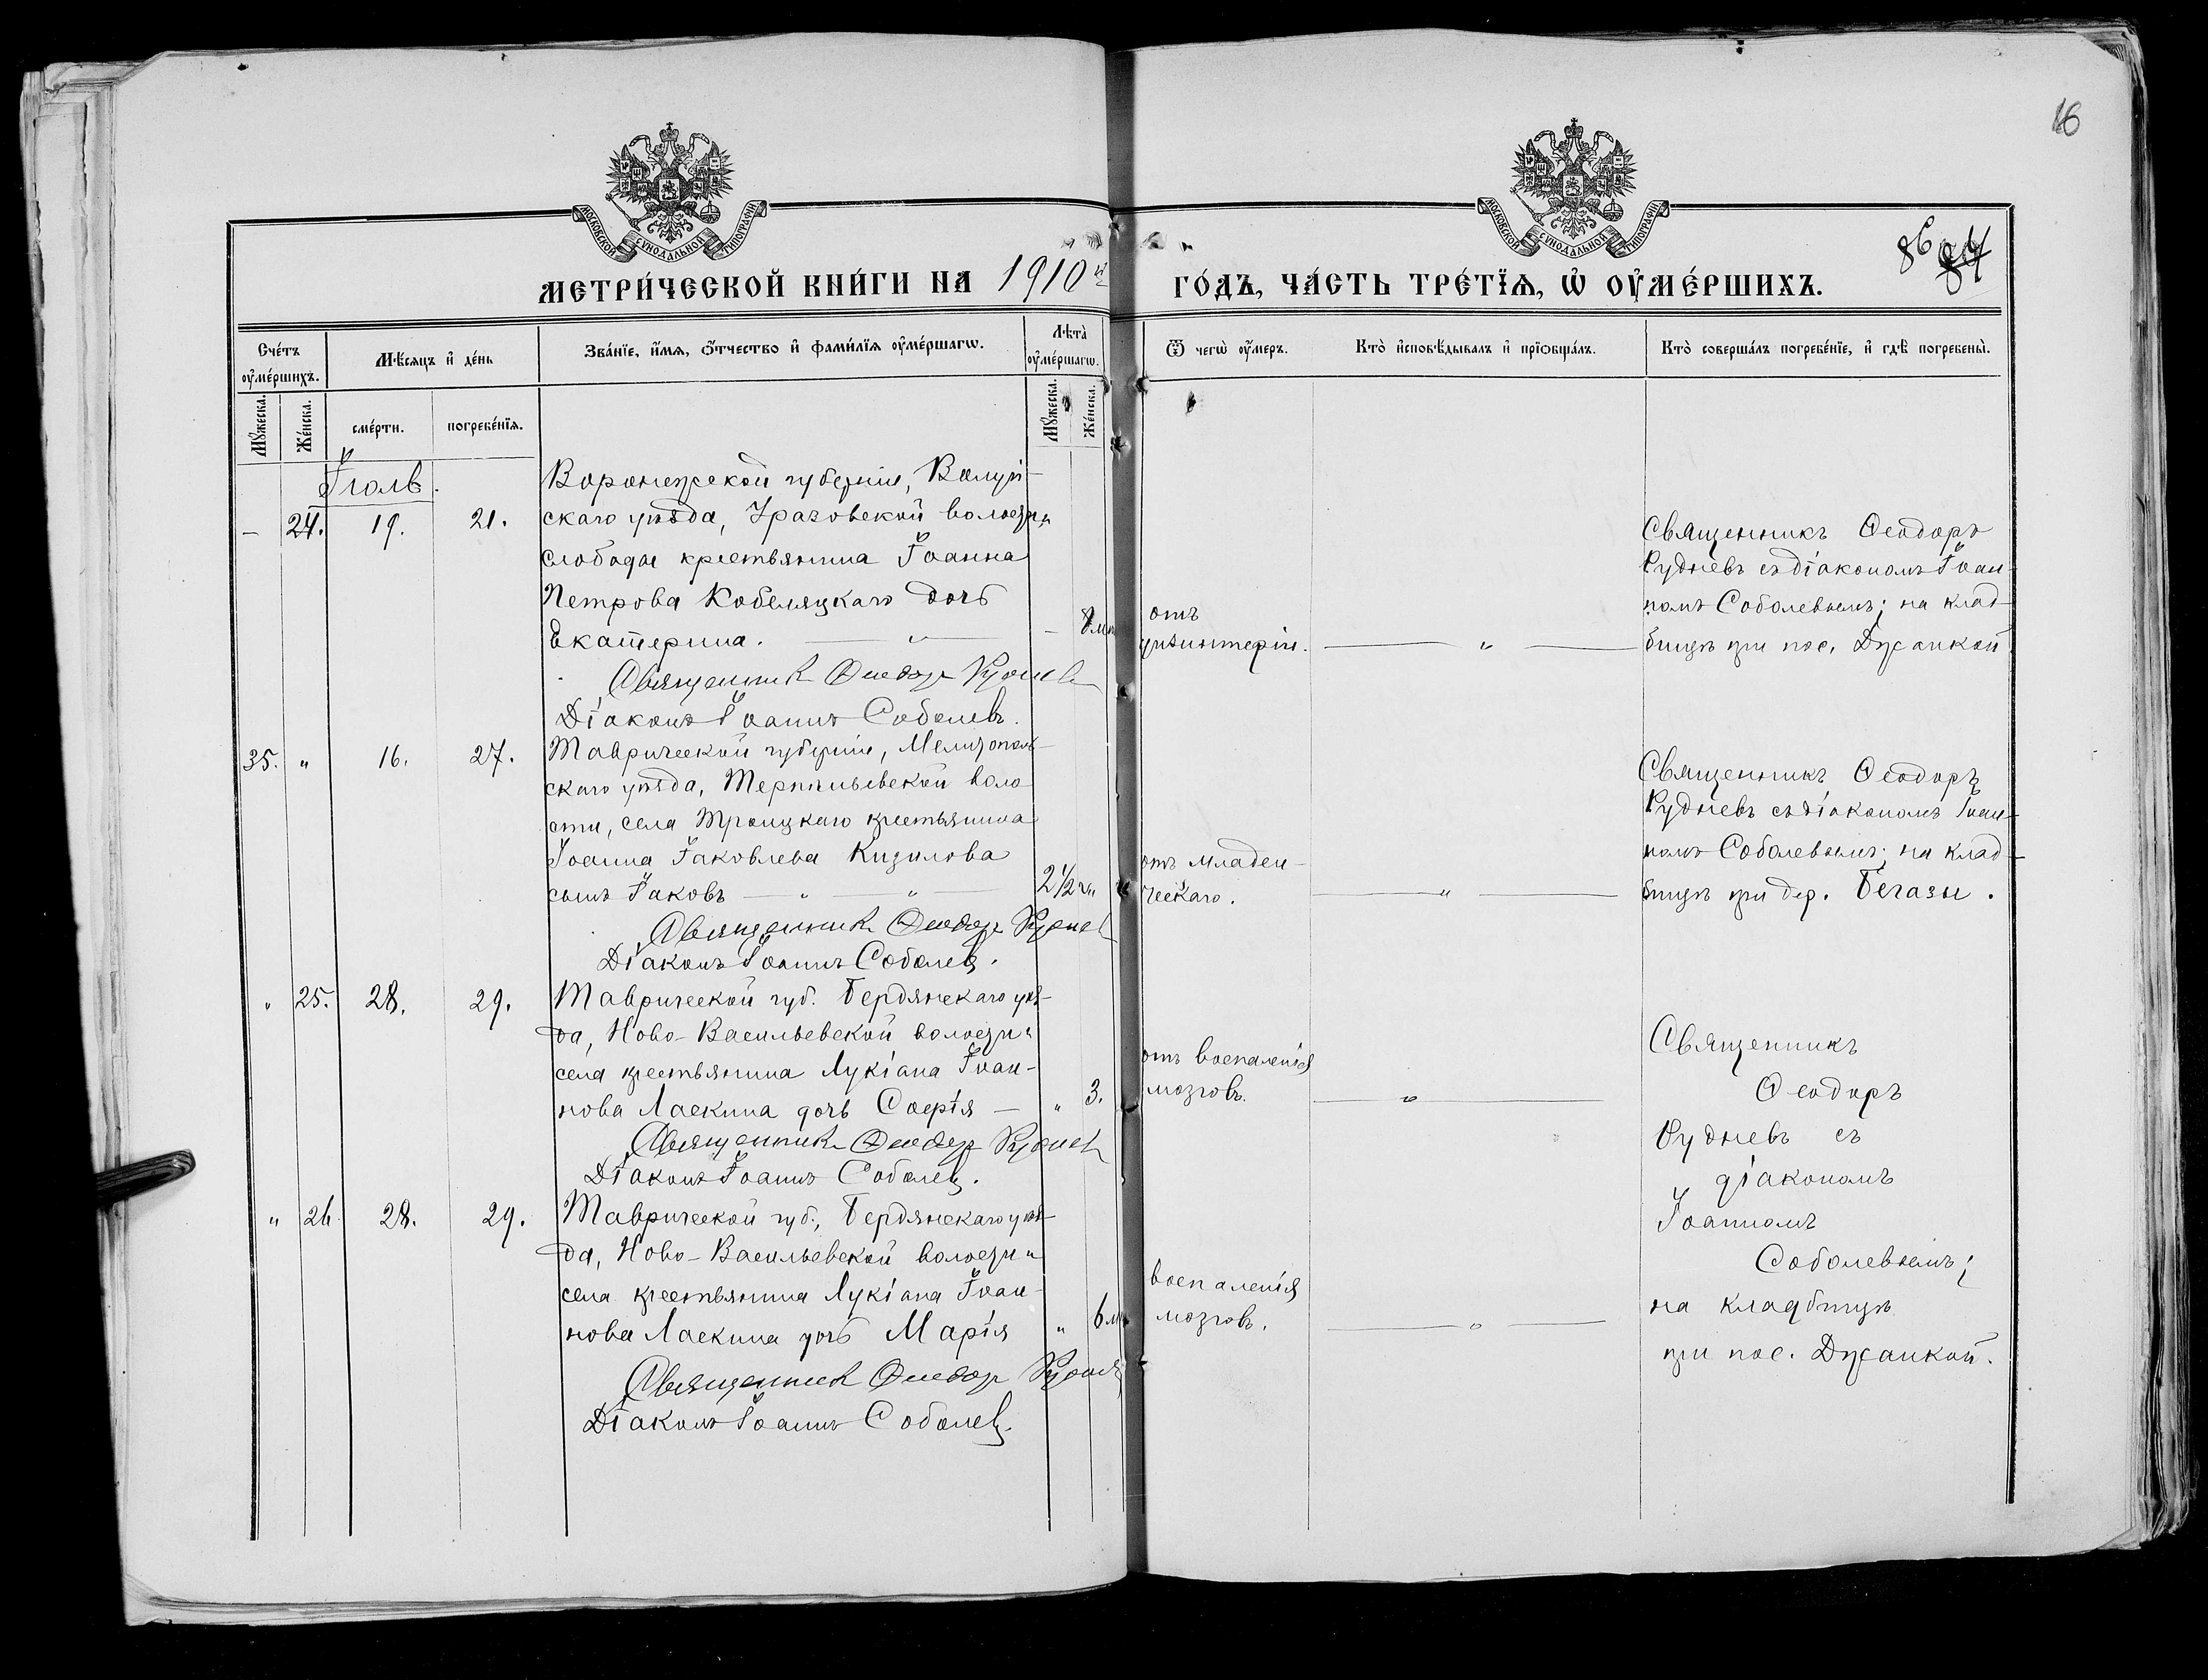 16
МОСКОВСКОЙ СУНОДАЛЬНОЙ ТИПОГРАФІИ
МОСКОВСКОЙ СУНОДАЛЬНОЙ ТИПОГРАФІИ
86 84
МЕТРИ́ЧЕСКОЙ КНИ́ГИ НА 1910й
ГО́ДЪ, ЧА́СТЬ ТРЕ́ТЇѦ, Ѡ ОУМЕ́РШИХЪ.
Сче́тъ оуме́ршихъ.
Мѣ́сяцъ и де́нь
Зва́нїе, и́мя, о́тчество и фами́лїя оуме́ршагѡ.
Лѣта̀ оуме́ршагѡ.
Ѿ чегѡ̀ оу́меръ.
Кто̀ исповѣ́дывалъ и прїѡбща́лъ.
Кто̀ соверша́лъ погребе́нїе, и гдѣ̀ погребены̀.
Му́жеска.
Же́нска.
сме́рти.
погребе́нїя.
Му́жеска.
Же́нска.
Іюль.
Воронежской губерніи, Валуй-
— 24. 19. 21. скаго уѣзда, Уразовской волости
слободы крестьянина Іоанна
Петрова Кобеляцкаго дочь
Екатерина. — „ — — 8 м.
Священникъ Ѳеодоръ Рудневъ
Діаконъ Іоаннъ Соболевъ.
отъ
дизинтеріи. — „ —
Священникъ Ѳеодоръ
Рудневъ съ діакономъ Іоан-
номъ Соболевымъ; на клад-
бищѣ при пос. Джанкой
35. „ 16. 27. Таврической губерніи, Мелитополь-
скаго уѣзда, Терпѣньевской воло
сти, села Троицкаго крестьянина
Іоанна Іаковлева Кизилова
сынъ Іаковъ — „ — „ — 2 1/2
Священникъ Ѳеодоръ Рудневъ
Діаконъ Іоаннъ Соболевъ.
отъ младен-
ческаго. — „ —
Священникъ Ѳеодоръ
Рудневъ съ діакономъ Іоан-
номъ Соболевымъ; на клад-
бищѣ при дер. Бегазы.
„ 25. 28. 29. Таврической губ. Бердянскаго уѣз-
да, Ново-Васильевской волости
села крестьянина Лукіана Іоан-
нова Ласкина дочь Софія — „ 3.
Священникъ Ѳеодоръ Рудневъ
Діаконъ Іоаннъ Соболевъ.
отъ воспаленія
мозговъ. — „ —
Священникъ
Ѳеодоръ
Рудневъ съ
діакономъ
Іоанномъ
Соболевымъ;
на кладбищѣ
при пос. Джанкой.
„ 26 28. 29. Таврической губ., Бердянскаго уѣз-
да, Ново-Васильевской волости
села крестьянина Лукіана Іоан-
нова Ласкина дочь Марія „ 6 м.
Священникъ Ѳеодоръ Рудневъ
Діаконъ Іоаннъ Соболевъ.
воспаленія
мозговъ. — „ —